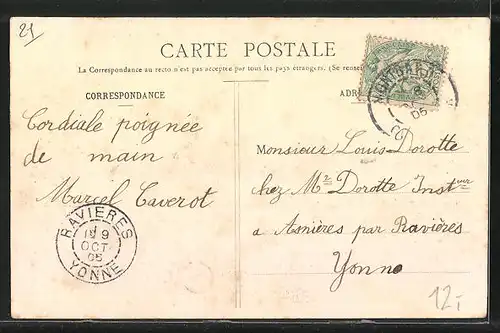 21
CARTE POSTALE
La Correspondance au recto n'est pas acceptée par tous les pays étrangers. (Se rensei
CORRESPONDANCE
ADR
MONTBARD
05
Cordiale poignée
de main
Marcel Taverot
Monsieur Louis Dorotte
chez Mr Dorotte Instteur
a Asnières par Ravières
Yonne
RAVIERES
9
OCT
05
YONNE
12,-